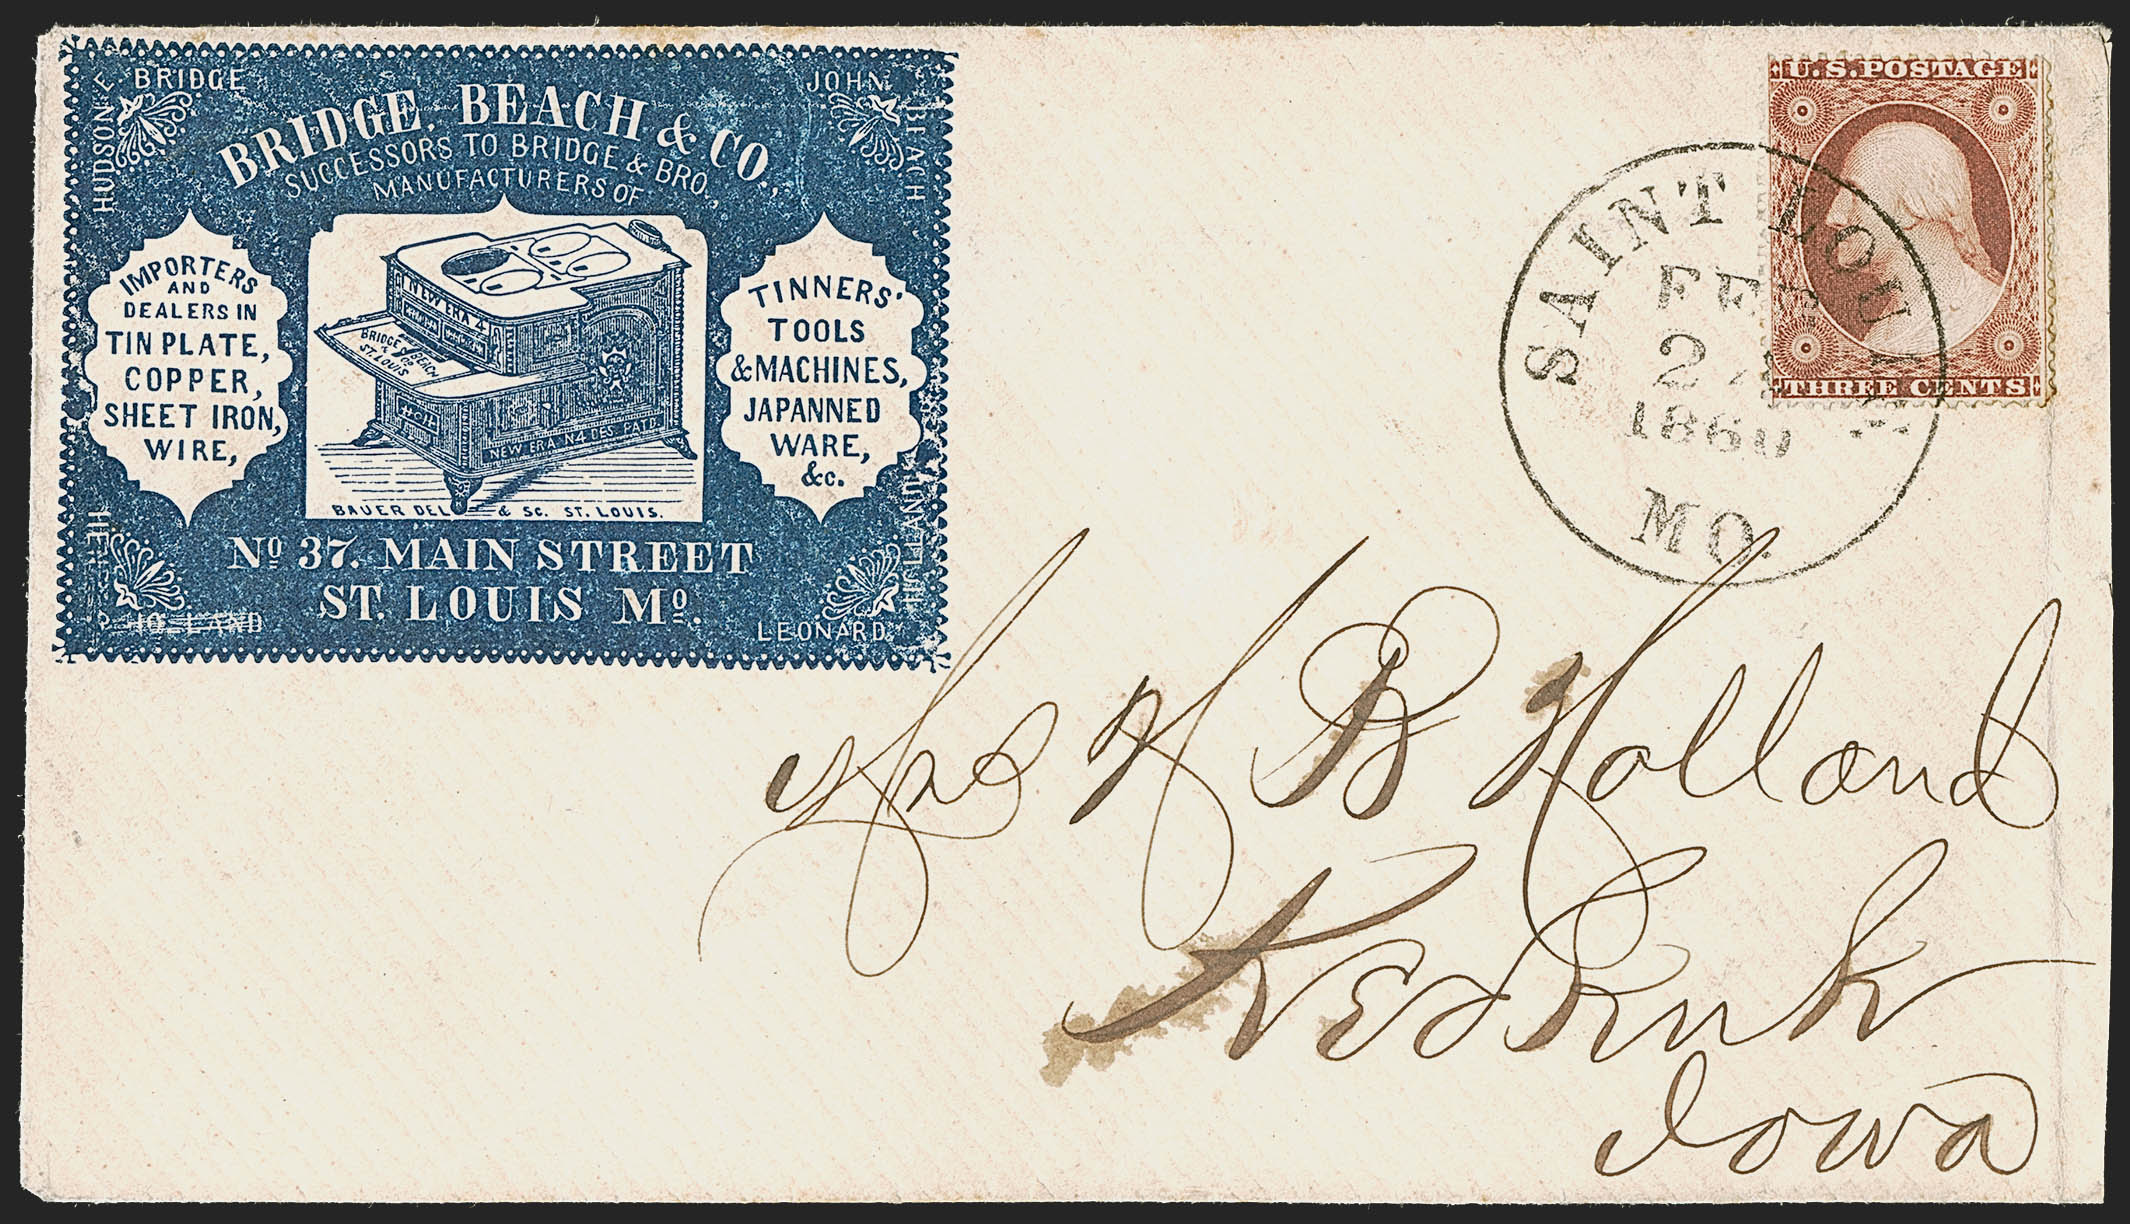 HUDSON E. BRIDGE
JOHN BEACH
BRIDGE, BEACH & CO.,
SUCCESSORS TO BRIDGE & BRO.,
MANUFACTURERS OF
IMPORTERS
AND
DEALERS IN
TIN PLATE,
COPPER,
SHEET IRON,
WIRE,
NEW ERA 4
BRIDGE BEACH
& CO
ST. LOUIS
NEW ERA N4 DES. PATD.
BAUER DEL & SC. ST. LOUIS.
TINNERS'
TOOLS
& MACHINES,
JAPANNED
WARE,
&c.
Nº 37. MAIN STREET
ST. LOUIS Mº.
HOLLAND
LEONARD
U.S. POSTAGE
THREE CENTS
SAINT LOUIS
FEB
1860
MO.
H B Holland
Keokuk
Iowa